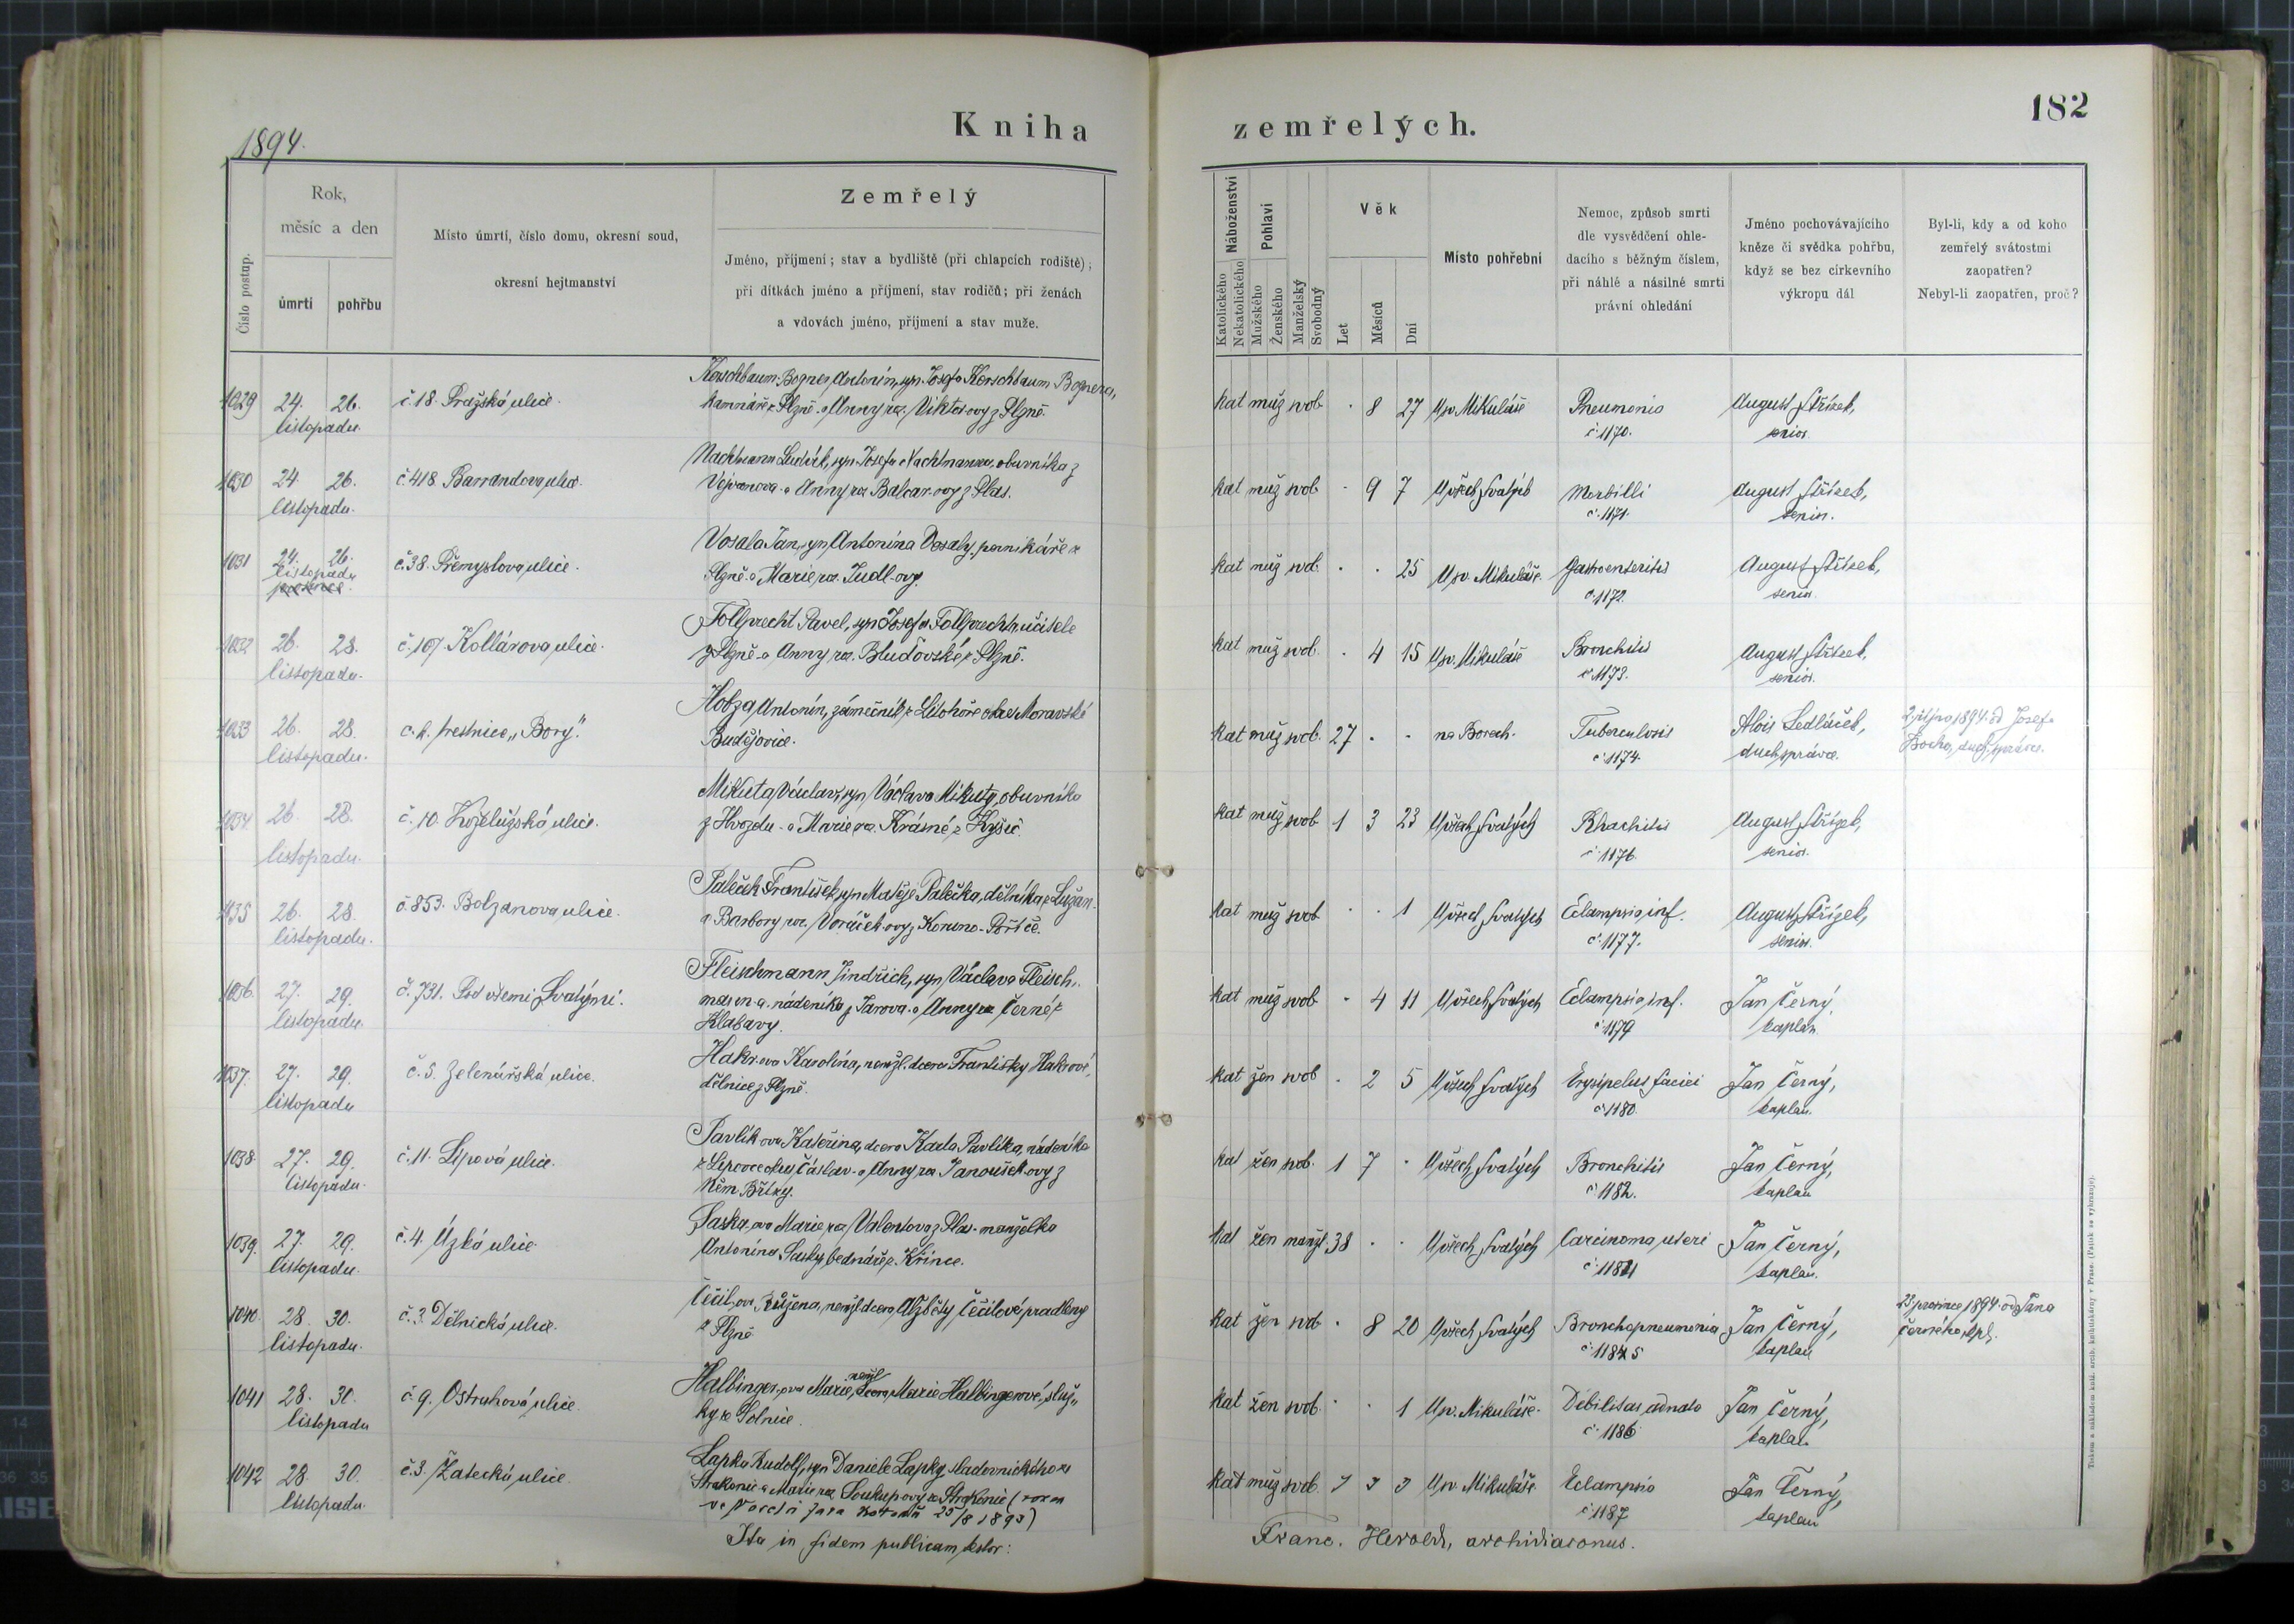 1894.
Kniha
zemřelých.
182
Číslo postup.
Rok,
měsíc a den
úmrtí
pohřbu
Místo úmrtí, číslo domu, okresní soud,
okresní hejtmanství
Zemřelý
Jméno, příjmení; stav a bydliště (při chlapcích rodiště);
při dítkách jméno a příjmení, stav rodičů; při ženách
a vdovách jméno, příjmení a stav muže.
Náboženství
Katolického
Nekatolického
Pohlaví
Mužského
Ženského
Manželský
Svobodný
Věk
Let
Měsíců
Dní
Místo pohřební
Nemoc, způsob smrti
dle vysvědčení ohle-
dacího s běžným číslem,
při náhlé a násilné smrti
právní ohledání
Jméno pochovávajícího
kněze či svědka pohřbu,
když se bez církevního
výkropu dál
Byl-li, kdy a od koho
zemřelý svátostmi
zaopatřen?
Nebyl-li zaopatřen, proč?
1029 24. 26. listopadu č. 18. Pražská ulice.
Kerschbaum-Bogner Antonín, syn Josefa Kerschbaum Bognera,
kamnáře z Plzně a Anny roz. Viktorovy z Plzně.
kat muž svob · 8 27 U sv. Mikuláše Pneumonia August
č. 1170. senior.
1030 24. 26. č. 418. Barrandova ulice.
listopadu.
Nachtmann Ludvík, syn Josefa Nachtmanna, obuvníka z
a Anny roz. Balcar-ovy z Plas.
kat muž svob · 9 7 U všech Svatých Morbilli August
č. 1171. senior.
1031 24. 26. č. 38. Přemyslova ulice.
listopadu
Vosala Jan, syn Antonína Vosaly, perníkáře z
Plzně a Marie roz. Judl-ovy.
kat muž svob. · · 25 U sv. Mikuláše. Gastroenteritis August
č. 1172. senior.
1032 26. 28. č. 107. Kollárova ulice.
listopadu.
Follprecht Pavel, syn Josefa Follprechta, učitele
z Plzně a Anny roz. Bludovské z Plzně.
kat muž svob. · 4 15 U sv. Mikuláše Bronchitis August
č. 1173. senior.
1033 26. 28. c. k. trestnice „Bory".
listopadu.
Hobza Antonín, zámečník z Litohoře okres Moravské
Budějovice.
kat muž svob. 27 · · na Borech. Tuberculosis Alois Sedláček,
č. 1174. duch. správce.
1034 26. 28. č. 10. Koželužská ulice.
listopadu.
Mikuta Václav, syn Václava Mikuty, obuvníka
z Hvozdu a Marie roz. Krásné z Kyšic.
kat muž svob 1 3 23 U všech Svatých Rhachitis August
č. 1176. senior.
1035 26. 28. č. 853. Bolzanova ulice.
listopadu.
Paleček František, syn Matěje Palečka, dělníka z Lužan
a Barbory roz. Voráček-ovy z
kat muž svob · · 1 U všech Svatých Eclampsia inf. August
č. 1177. senior.
1036. 27. 29. č. 731. Pod všemi Svatými.
listopadu.
Fleischmann Jindřich, syn Václava Fleisch-
mann-a, nádeníka z Jarova a Anny roz. Černé z
Klabavy.
kat muž svob · 4 11 U všech Svatých Eclampsia inf. Jan Černý,
č. 1179 kaplan
1037. 27. 29. č. 5. Zelenářská ulice.
listopadu
Hakr-ova Karolína, nemžl. dcera Františky Hakrové,
dělnice z Plzně.
kat žen svob · 2 5 U všech Svatých Erysipelus faciei Jan Černý,
č. 1180. kaplan.
1038. 27. 29. č. 11. Lipová ulice.
listopadu.
Pavlík-ova Kateřina, dcera Karla Pavlíka, nádeníka
z Lipovce okres Čáslav a Anny roz. Janoušek-ovy z
Něm. Břízky.
kat žen svob. 1 7 · U všech Svatých Bronchitis Jan Černý,
č. 1182. kaplan
1039. 27. 29. č. 4. Úzká ulice.
listopadu.
Saska-ova Marie roz. Valentova z Plas manželka
Antonína Sasky, bednáře z Křince.
kat žen manžel. 38 · · U všech Svatých Carcinoma uteri Jan Černý,
kaplan.
1040. 28. 30. č. 3. Dělnická ulice.
listopadu.
Čečil-ova Růžena, nemžl. dcera Alžběty Čečilové, pradleny
z Plzně
kat žen svob · 8 20 U všech Svatých Bronchopneumonia Jan Černý,
kaplan
23. prosince 1894 od Jana
Černého, kpl.
1041 28. 30. č. 9. Ostruhová ulice.
listopadu
Halbinger-ova Marie, nemžl dcera Marie Halbingerové, služ-
ky ze Solnice.
kat žen svob. · · 1 U sv. Mikuláše. Debilitas adnata Jan Černý,
č. 1186 kaplan
1042 28. 30. č. 3. Žatecká ulice.
listopadu.
Lapka Rudolf, syn Daniele Lapky, sladovnického ze
Strakonic a Marie roz. Soukupovy ze Strakonic
25/8 1893)
kat muž svob. 1 3 3 U sv. Mikuláše Eclampsia Jan Černý,
č. 1187 kaplan
Ita in fidem publicam testor:
Franc. Herold, archidiaconus.